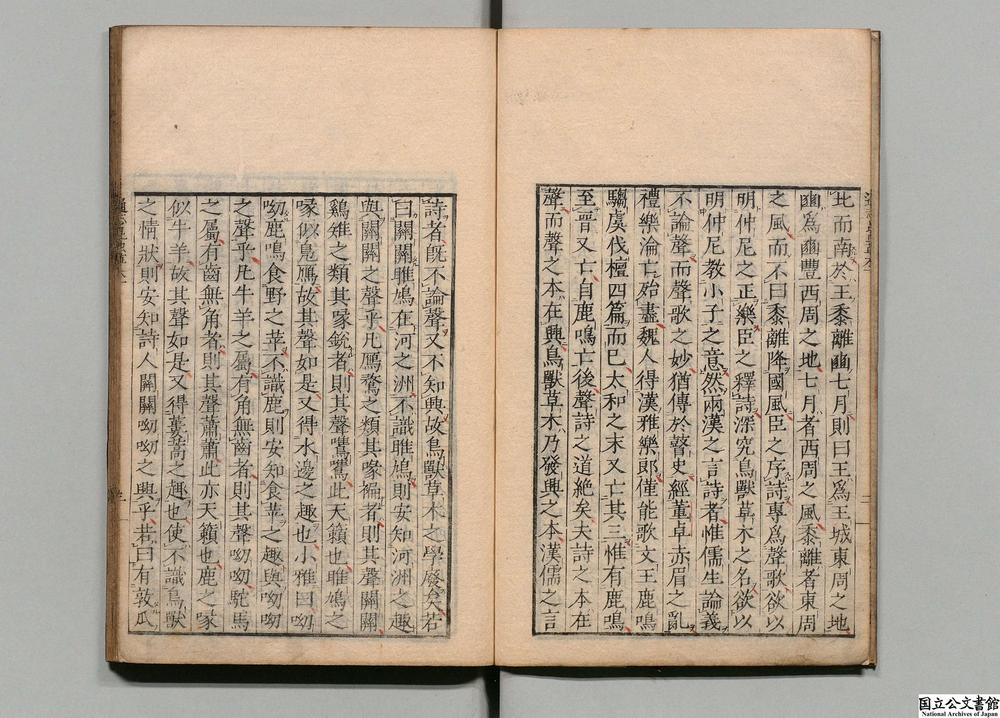 此而南於王黍離豳七月則曰王爲王城東周之地
豳爲豳豐西周之地七月者西周之風黍離者東周
之風而不曰黍離降國風臣之序詩專爲聲歌欲以
明仲尼之正樂臣之釋詩深究鳥獸草木之名欲以
明仲尼教小子之意然兩漢之言詩者惟儒生論義
不論聲而聲歌之妙猶傳於瞽史經董卓赤眉之亂
禮樂淪亡殆盡魏人得漢雅樂郎僅能歌文王鹿鳴
騶虞伐檀四篇而已太和之末又亡其三惟有鹿鳴
至晉又亡自鹿鳴亡後聲詩之道絶矣夫詩之本在
聲而聲之本在興鳥獸草木乃發興之本漢儒之言
詩者旣不論聲又不知興故鳥獸草木之學廢矣若
曰關關雎鳩在河之洲不識雎鳩則安知河洲之趣
與關關之聲乎凡鴈鶩之類其喙褊者則其聲關關
鷄雉之類其喙銳者則其聲鷕鷕此天籟也雎鳩之
喙似鳧鴈故其聲如是又得水邊之趣也小雅曰呦
呦鹿鳴食野之苹不識鹿則安知食苹之趣與呦呦
之聲乎凡牛羊之屬有角無齒者則其聲呦呦駝馬
之屬有齒無角者則其聲蕭蕭此亦天籟也鹿之喙
似牛羊故其聲如是又得蔞蒿之趣也使不識鳥獸
之情狀則安知詩人關關呦呦之興乎若曰有敦瓜
国立公文書館
National Archives of Japan